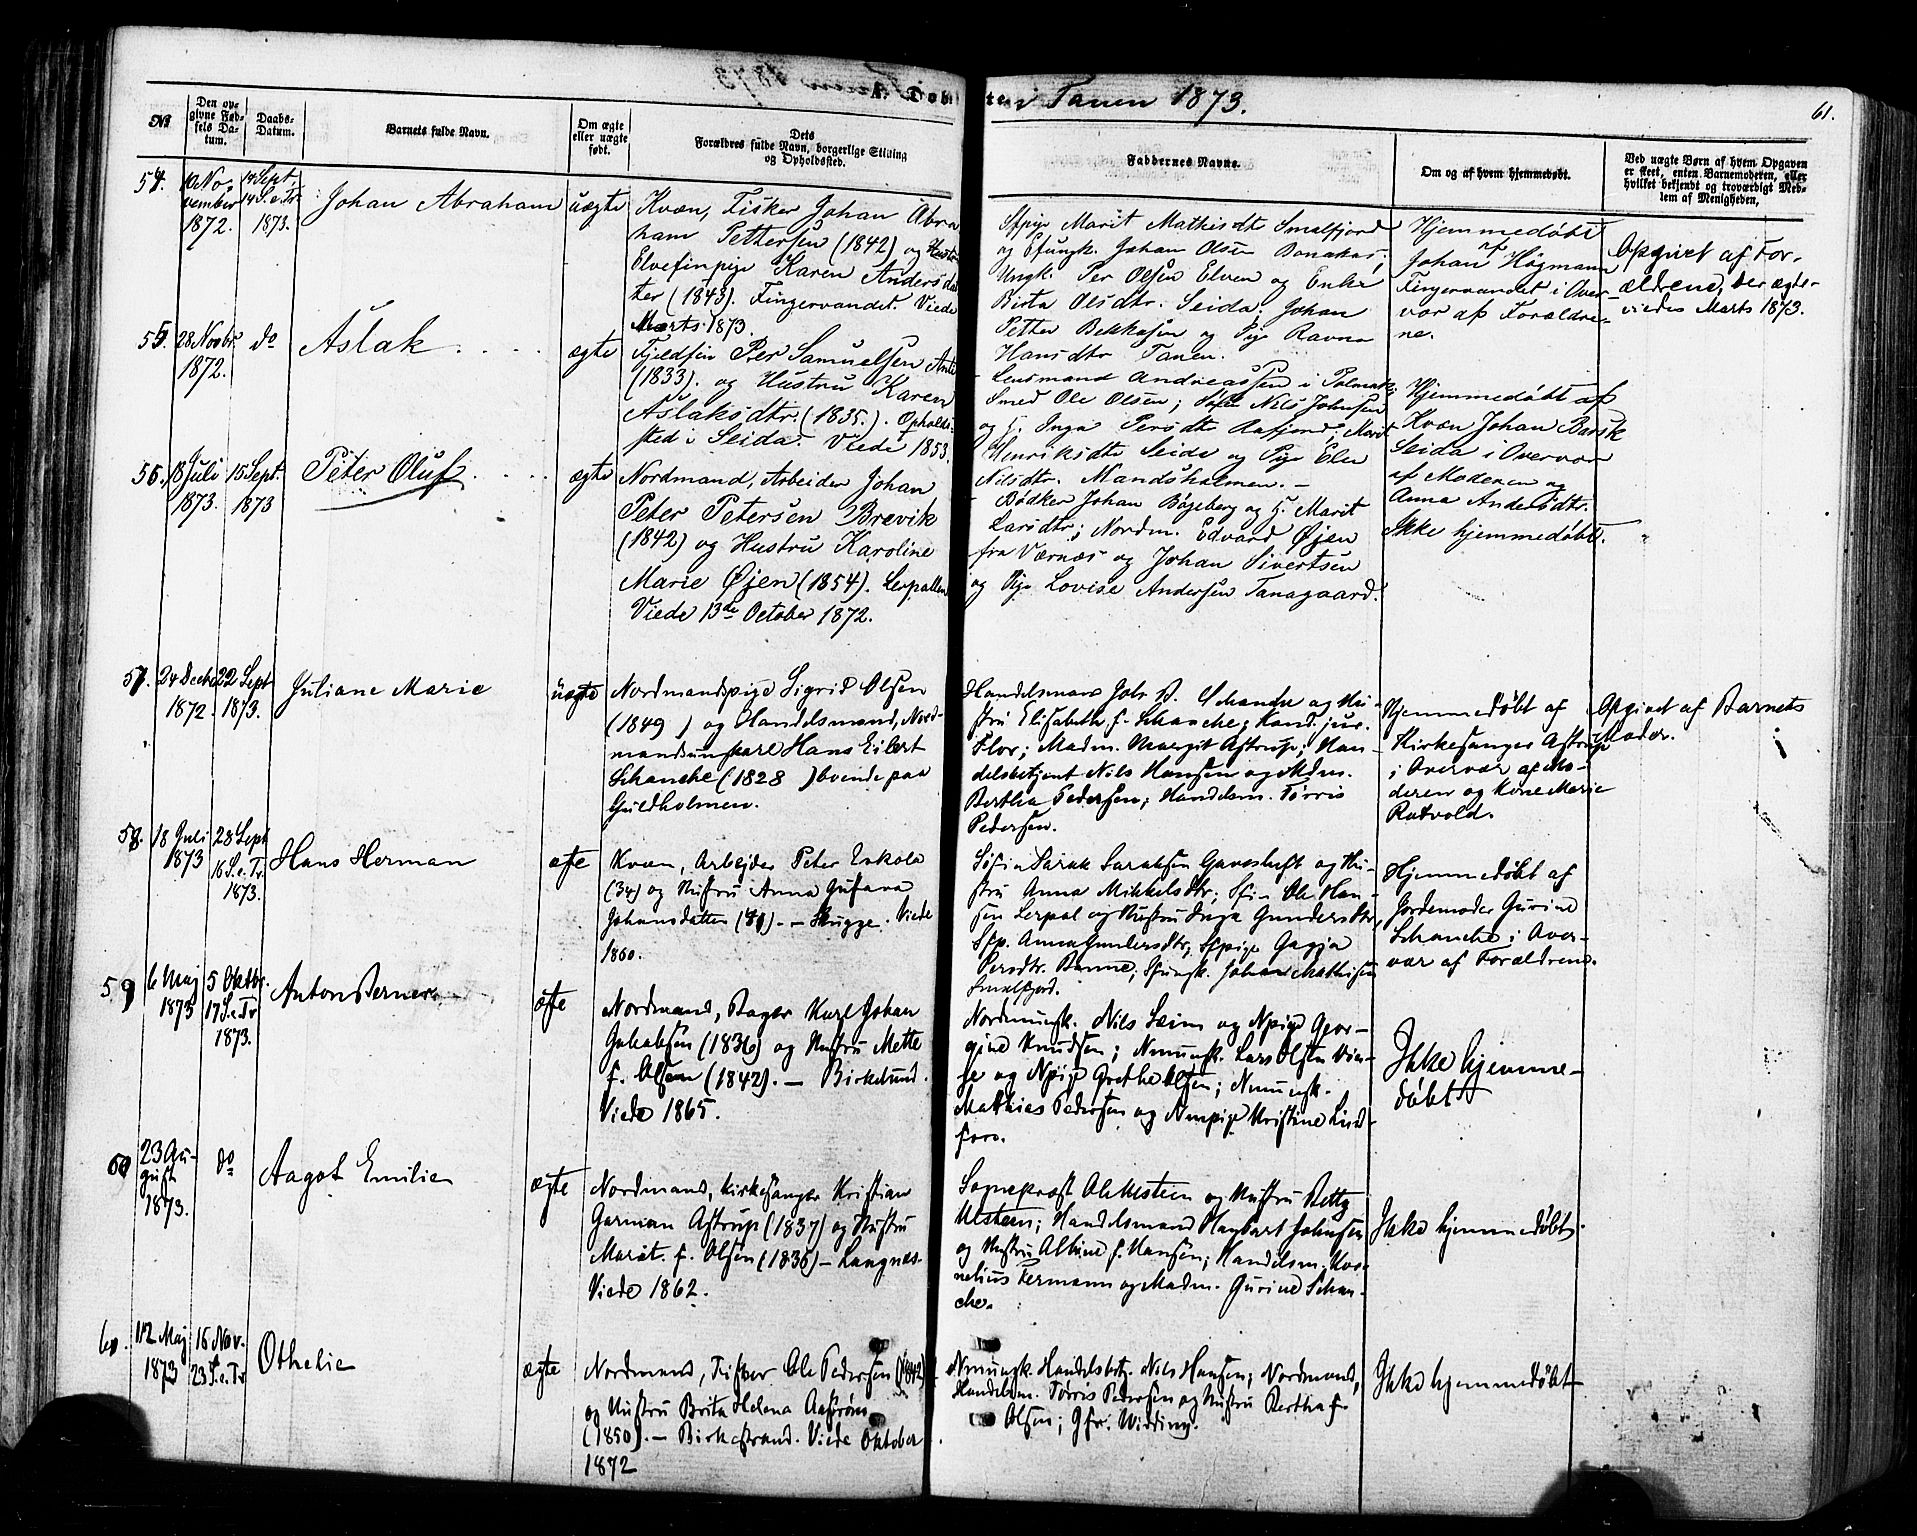 Døbte i Tanen 1873.
61.
No.
Den opgivne Fødsels Datum.
Daabs-Datum.
Barnets fulde Navn.
Om ægte eller uægte født.
Dets Forældres fulde Navn, borgerlige Stilling og Opholdssted.
Faddernes Navne.
Om og af hvem hjemmedøbt.
Ved uægte Børn af hvem Opgaven er skeet, enten Barnemoderen, eller hvilket bekjendt og troværdigt Medlem af Menigheden.
54.
10 No-
vember
1872.
14 Sept.
14 S. e. Tr.
1873.
Johan Abraham
uægte
Kvæn, Fisker Johan Abra
ham Pettersen (1842) og
Elvefinpige Karen Andersdat
ter (1843). Fingervandet. Viede
Marts 1873.
Sfpige Marit Mathisdt Smalfjord
og Sfungk. Johan Olsen Bonakas;
Ungk. Per Olsen Elven og Enke
Birta Olsdtr. Seida. Johan
Petter Bekkasen og Pige Ravna
Hansdtr Tanen.
Hjemmedøbt
af
Johan Høgmann
Fingervandet i Over-
vær af Forældre-
ne.
Opgivet af For-
ældrene, der ægte-
viedes Marts 1873.
55.
28 Novbr
1872.
do
Aslak
ægte
Fjeldfin Per Samuelsen Anti
(1833). og Hustru Karen
Aslaksdtr. (1835.). Opholds-
sted i Seida. Viede 1853.
Lensmand Andreassen i Polmak;
Smed Ole Olsen; Nils Johnsen
og H. Inga Persdtr Rafjord; Marit
Henriksdtr Seida og Pige Elen
Nilsdtr. Mandsholmen. -
Hjemmedøbt af
Kvæn Johan Bask
Seida i Overvær
af Moderen og
Anna Andersdtr.
56.
18 Juli
1873.
15 Sept.
1873
Peter Oluf
ægte
Nordmand, Arbeider Johan
Peter Petersen Brevik
(1842) og Hustru Karoline
Marie Øjen (1854). Lerpollen
Viede 13de October 1872.
Bødker Johan Bøgeberg og H. Marit
Larsdtr; Nordm. Edvard Øjen
fra Værnæs og Johan Sivertsen
og Pige Lovise Andersen Tanagaard.
Ikke hjemmedøbt.
57.
24 Decbr
1872.
22 Sept
1873.
Juliane Marie
uægte
Nordmandspige Sigrid Olsen
(1849 ) og Handelsmand, Nord-
mandsungkarl Hans Eilert
Schanche (1828 ) boende paa
Guldholmen.
Handelsmand Johs B. Schanche og Hu-
stru Elisabeth f. Schanche; Kand. jur.
Flor; Madm. Margit Astrup; Han-
delsbetjent Nils Hansen og Mdm.
Bertha Pedersen; Handelsm. Tørris
Pedersen.
Hjemmedøbt af
Kirkesanger Astrup
i Overvær af Mo-
deren og Kone Marie
Ratvold.
Opgivet af Barnets
Moder.
58.
18 Juli
1873
28 Sept
16 S. e. Tr.
1873.
Hans Herman
ægte
Kvæn, Arbejder Peter Erkola
(34) og Hustru Anna Gustava
Johansdatter (41). - Skugge. Viede
1860.
Søfin Sarak Saraksen Gavesluft og Hu-
stru Anna Mikkelsdtr; Sfi- Ole Han-
sen Lerpol og Hustru Inga Gundersdtr,
Sfp. Anna Gundersdtr; Sfpige Gagja
Persdtr. Banne; Sfungk. Johan Mathisen
Smalfjord.
Hjemmedøbt af
Jordemoder Gurine
Schanche i Over-
vær af Forældrene.
59
6 Maj
1873
5 Oktbr.
17 S. e. Tr
1873.
Anton Berner
ægte
Nordmand, Bager Karl Johan
Jakobsen (1836) og Hustru Mette
f. Olsen (1842). - Birkelund.
Viede 1865.
Nordmungk. Nils Seim og Npige Geor-
gine Knudsen; Nmungk. Lars Olsen
og Npige Grethe Olsen; Nmungk.
Mathias Pedersen og Nmpige Kristine Lind-
fors.
Ikke hjemme-
døbt
60
23 Au-
gust
1873.
do
Aagot Emilie
ægte
Nordmand, Kirkesanger Kristian
Garman Astrup (1837) og Hustru
Marit f. Olsen (1836) - Langnæs.
Viede 1862.
Sogneprest Ole Ulstein og Hustru Betty
Ulstein; Handelsmand Hagbart Johnsen
og Hustru Albine f. Hansen; Handelsm. Kor-
nelius Permann og Madm. Gurine Schan-
che.
Ikke hjemmedøbt.
61.
12 Maj
1873
16 Nov.
23 S. e. Tr
Othelie
ægte
Nordmand, Fisker Ole Pedersen (1842)
og Hustru Brita Helena Aastrøm
(1850). - Birkestrand. Viede Oktober
1872
Nmungk. Handelsbetj. Nils Hansen; Nordmand,
Handelsm. Tørris Pedersen og Hustru Bertha f.
Olsen; Jfr. Widding.
Ikke hjemmedøbt